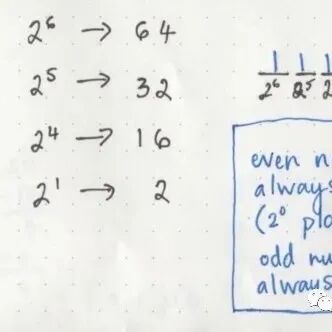 2⁶ → 64
2⁵ → 32
2⁴ → 16
2¹ → 2
1 1 1
2⁶ 2⁵ 2
even n
always
(2⁰ pla
odd nu
always